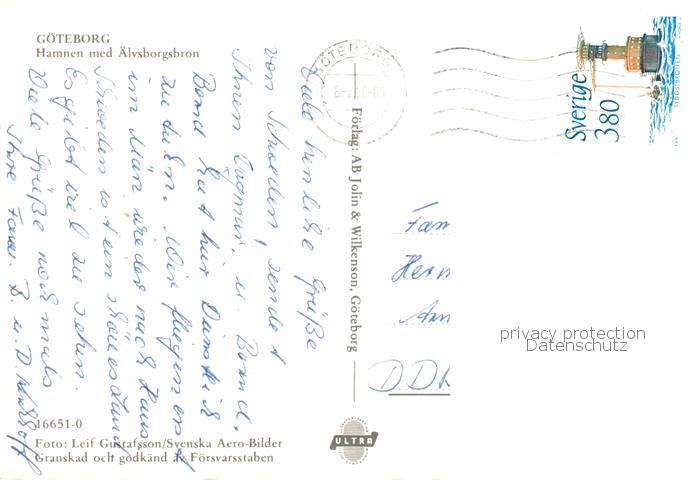 GÖTEBORG
Hamnen med Älvsborgsbron
Viele herzliche Grüße
von Schweden, sendet
Ihnen Dagmar u. Bernd.
Bernd hat hier Dienstl.
zu tun. Wir fliegen erst
im März wieder nach Haus
Schweden ist ein schönes Land
Es gibt viel zu sehen.
Viele Grüße nochmals
Ihre Fam. B. u. D.
16651-0
Foto: Leif Gustafsson/Svenska Aero-Bilder
Granskad och godkänd av Försvarsstaben
Förlag: AB Jolin & Wilkenson, Göteborg
ULTRA
GÖTEBORG
Sverige
380
Fam
Herr
DDR
privacy protection
Datenschutz